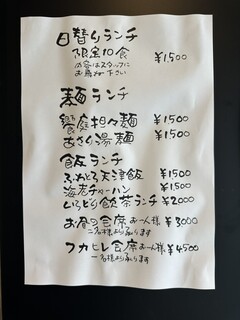 日替りランチ
限定10食 ¥1,500
内容はスタッフに
お尋ね下さい
麺ランチ
饗庭担々麺 ¥1500
あさり湯麺 ¥1500
飯ランチ
ふわとろ天津飯 ¥1500
海老チャーハン ¥1500
いろどり飲茶ランチ ¥2000
お昼の会席 お一人様 ¥3000
二名様より承ります
フカヒレ会席 お一人様 ¥4500
一名様より承ります